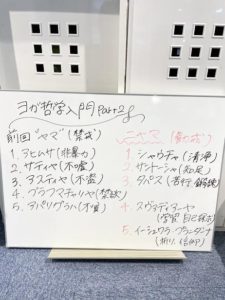 ヨガ哲学入門 Part2
前回 "ヤマ" (禁戒)
1. アヒムサ (非暴力)
2. サティヤ (不嘘)
3. アスティヤ (不盗)
4. ブラフマチャリヤ (禁欲)
5. アパリグラハ (不貪)
ニヤマ (勧戒)
1. シャウチャ (清浄)
2. サントーシャ (知足)
3. タパス (苦行、鍛錬)
4. スヴァディアーヤ
(学習 自己探求)
5. イーシュワラ・プラニダーナ
(祈り、信仰)